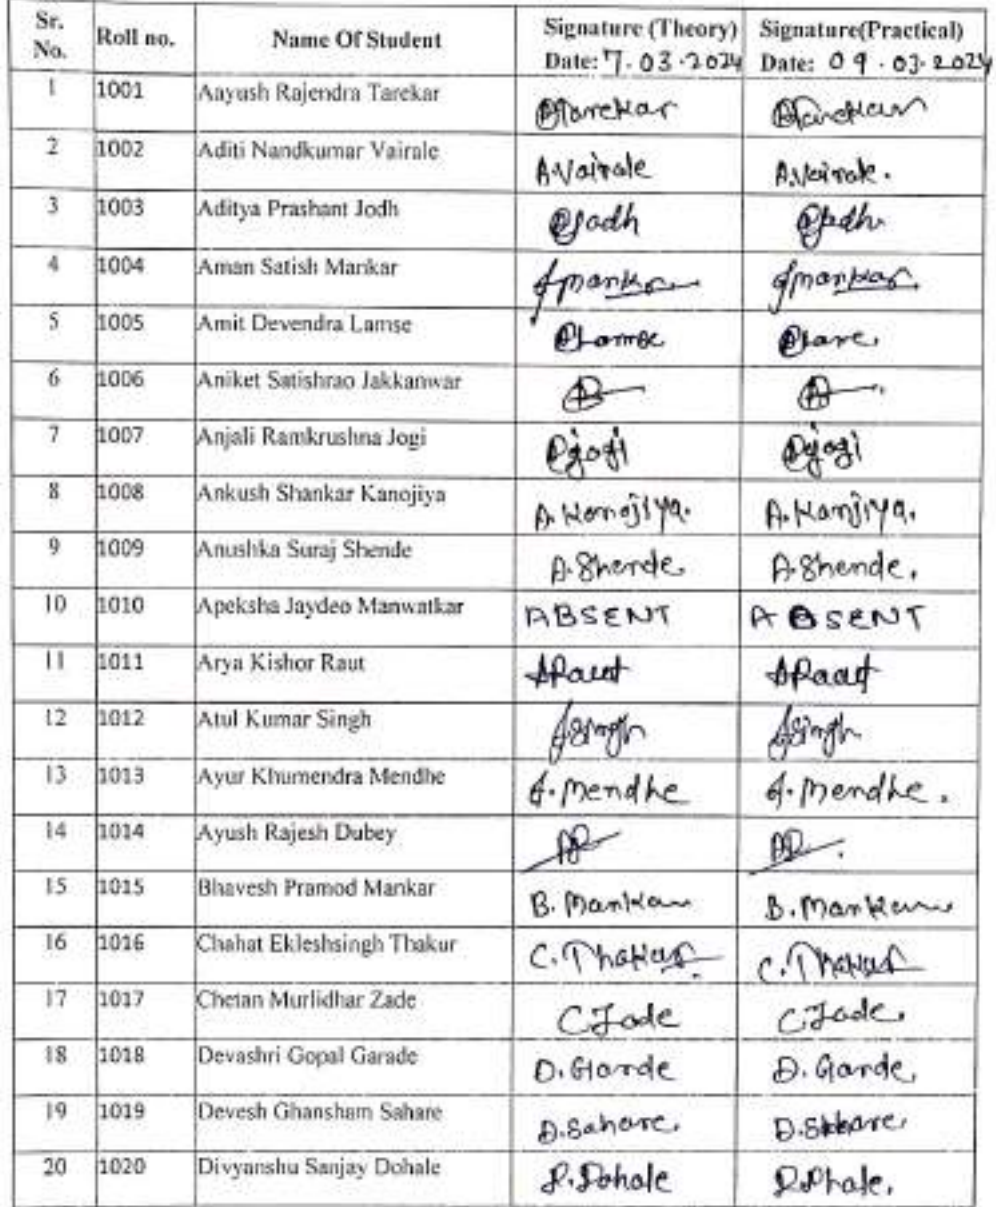 Sr. No. Roll no. Name Of Student Signature (Theory) Date: 7.03.2024 Signature(Practical) Date: 09.03.2024
1 1001 Aayush Rajendra Tarekar ATarekar ATarekar
2 1002 Aditi Nandkumar Vairale A.Vairale A.Vairale.
3 1003 Aditya Prashant Jodh @Jodh @Jodh
4 1004 Aman Satish Mankar Amankar Amankar
5 1005 Amit Devendra Lamse @Lamse
6 1006 Aniket Satishrao Jakkanwar
7 1007 Anjali Ramkrushna Jogi @jogi @jogi
8 1008 Ankush Shankar Kanojiya A. Kanojiya. A. Kanjiya.
9 1009 Anushka Suraj Shende A.Shende. A.Shende.
10 1010 Apeksha Jaydeo Manwatkar ABSENT ABSENT
11 1011 Arya Kishor Raut ARaut ARaut
12 1012 Atul Kumar Singh ASingh ASingh
13 1013 Ayur Khumendra Mendhe A. Mendhe A. Mendhe.
14 1014 Ayush Rajesh Dubey
15 1015 Bhavesh Pramod Mankar B. Mankar B. Mankar
16 1016 Chahat Ekleshsingh Thakur C. Thakur C. Thakur
17 1017 Chetan Murlidhar Zade C.Zade C.Zade.
18 1018 Devashri Gopal Garade D. Garde D. Garde.
19 1019 Devesh Ghansham Sahare D.Sahare. D.Sahare.
20 1020 Divyanshu Sanjay Dohale D.Dohale